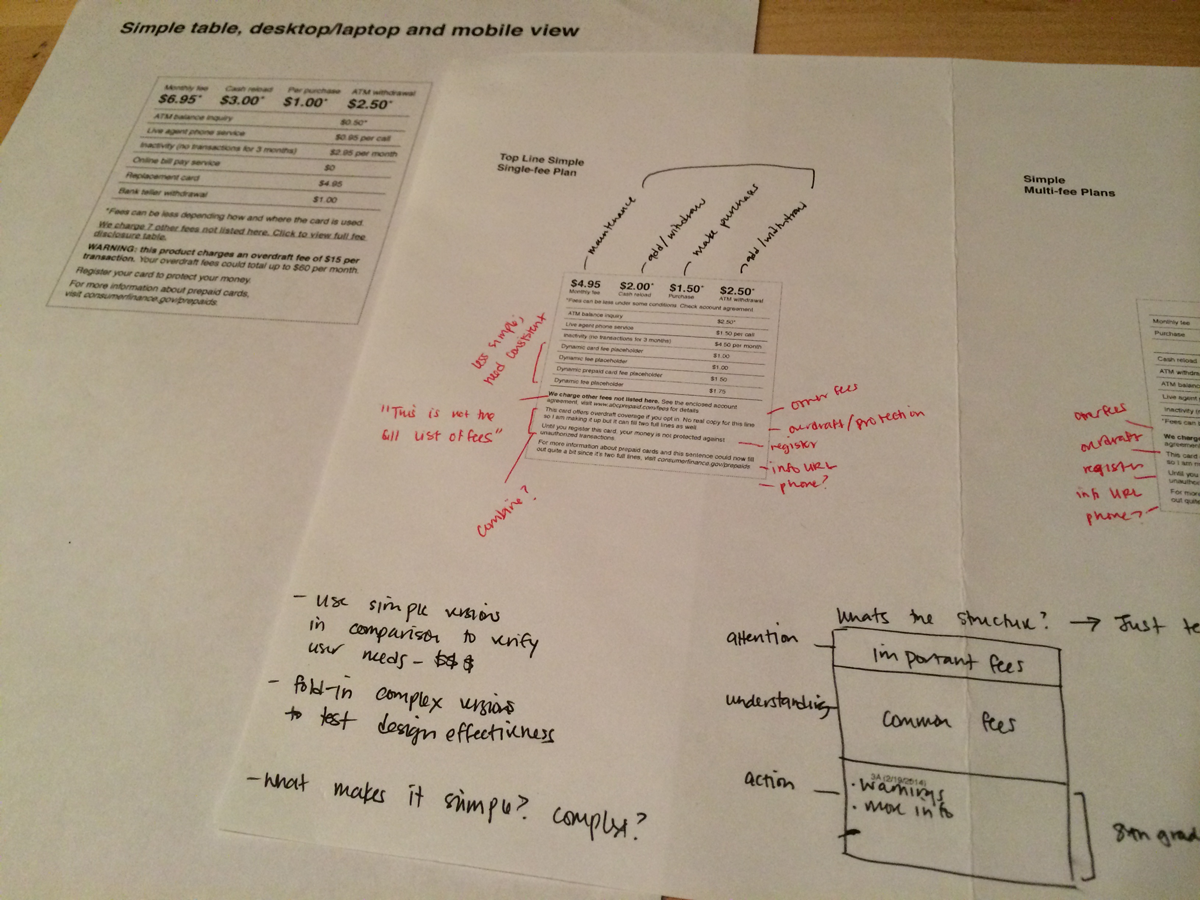 Simple table, desktop/laptop and mobile view
Monthly fee Cash reload Per purchase ATM withdrawal
$6.95* $3.00* $1.00* $2.50*
ATM balance inquiry $0.50*
Live agent phone service $0.95 per call
Inactivity (no transactions for 3 months) $2.95 per month
Online bill pay service $0
Replacement card $4.95
Bank teller withdrawal $1.00
*Fees can be less depending how and where the card is used.
We charge 7 other fees not listed here. Click to view full fee
disclosure table.
WARNING: this product charges an overdraft fee of $15 per
transaction. Your overdraft fees could total up to $60 per month.
Register your card to protect your money.
For more information about prepaid cards,
visit consumerfinance.gov/prepaids.
Top Line Simple
Single-fee Plan
– maintenance
– add/withdraw
– make purchases
– add/withdraw
$4.95 $2.00* $1.50* $2.50*
Monthly fee Cash reload Purchase ATM withdrawal
*Fees can be less under some conditions. Check account agreement
ATM balance inquiry $2.50*
Live agent phone service $1.50 per call
Inactivity (no transactions for 3 months) $4.50 per month
Dynamic card fee placeholder $1.00
Dynamic fee placeholder $1.00
Dynamic prepaid card fee placeholder $1.50
Dynamic fee placeholder $1.75
We charge other fees not listed here. See the enclosed account
agreement, visit www.abcprepaid.com/fees for details
This card offers overdraft coverage if you opt in. No real copy for this line
so I am making it up but it can fill two full lines as well
Until you register this card, your money is not protected against
unauthorized transactions.
For more information about prepaid cards and this sentence could now fill
out quite a bit since it's two full lines, visit consumerfinance.gov/prepaids
less simple;
need consistent
"This is not the
full list of fees"
combine?
– other fees
– overdraft/protection
– register
– info URL
– phone?
Simple
Multi-fee Plans
Monthly fee
Purchase
Cash reload
ATM withdraw
ATM balance
Live agent
Inactivity (
*Fees can
We charge
agreement
This card
so I am m
Until you
unauthor
For more
out quite
other fees
overdraft
register
info URL
phone?
– use simple versions
in comparison to verify
user needs – $$$
– fold-in complex versions
to test design effectiveness
– what makes it simple? complex?
whats the structure? → Just te
attention – important fees
understanding – common fees
action –
3A (2/19/2014)
· warnings
· more info
8th grad